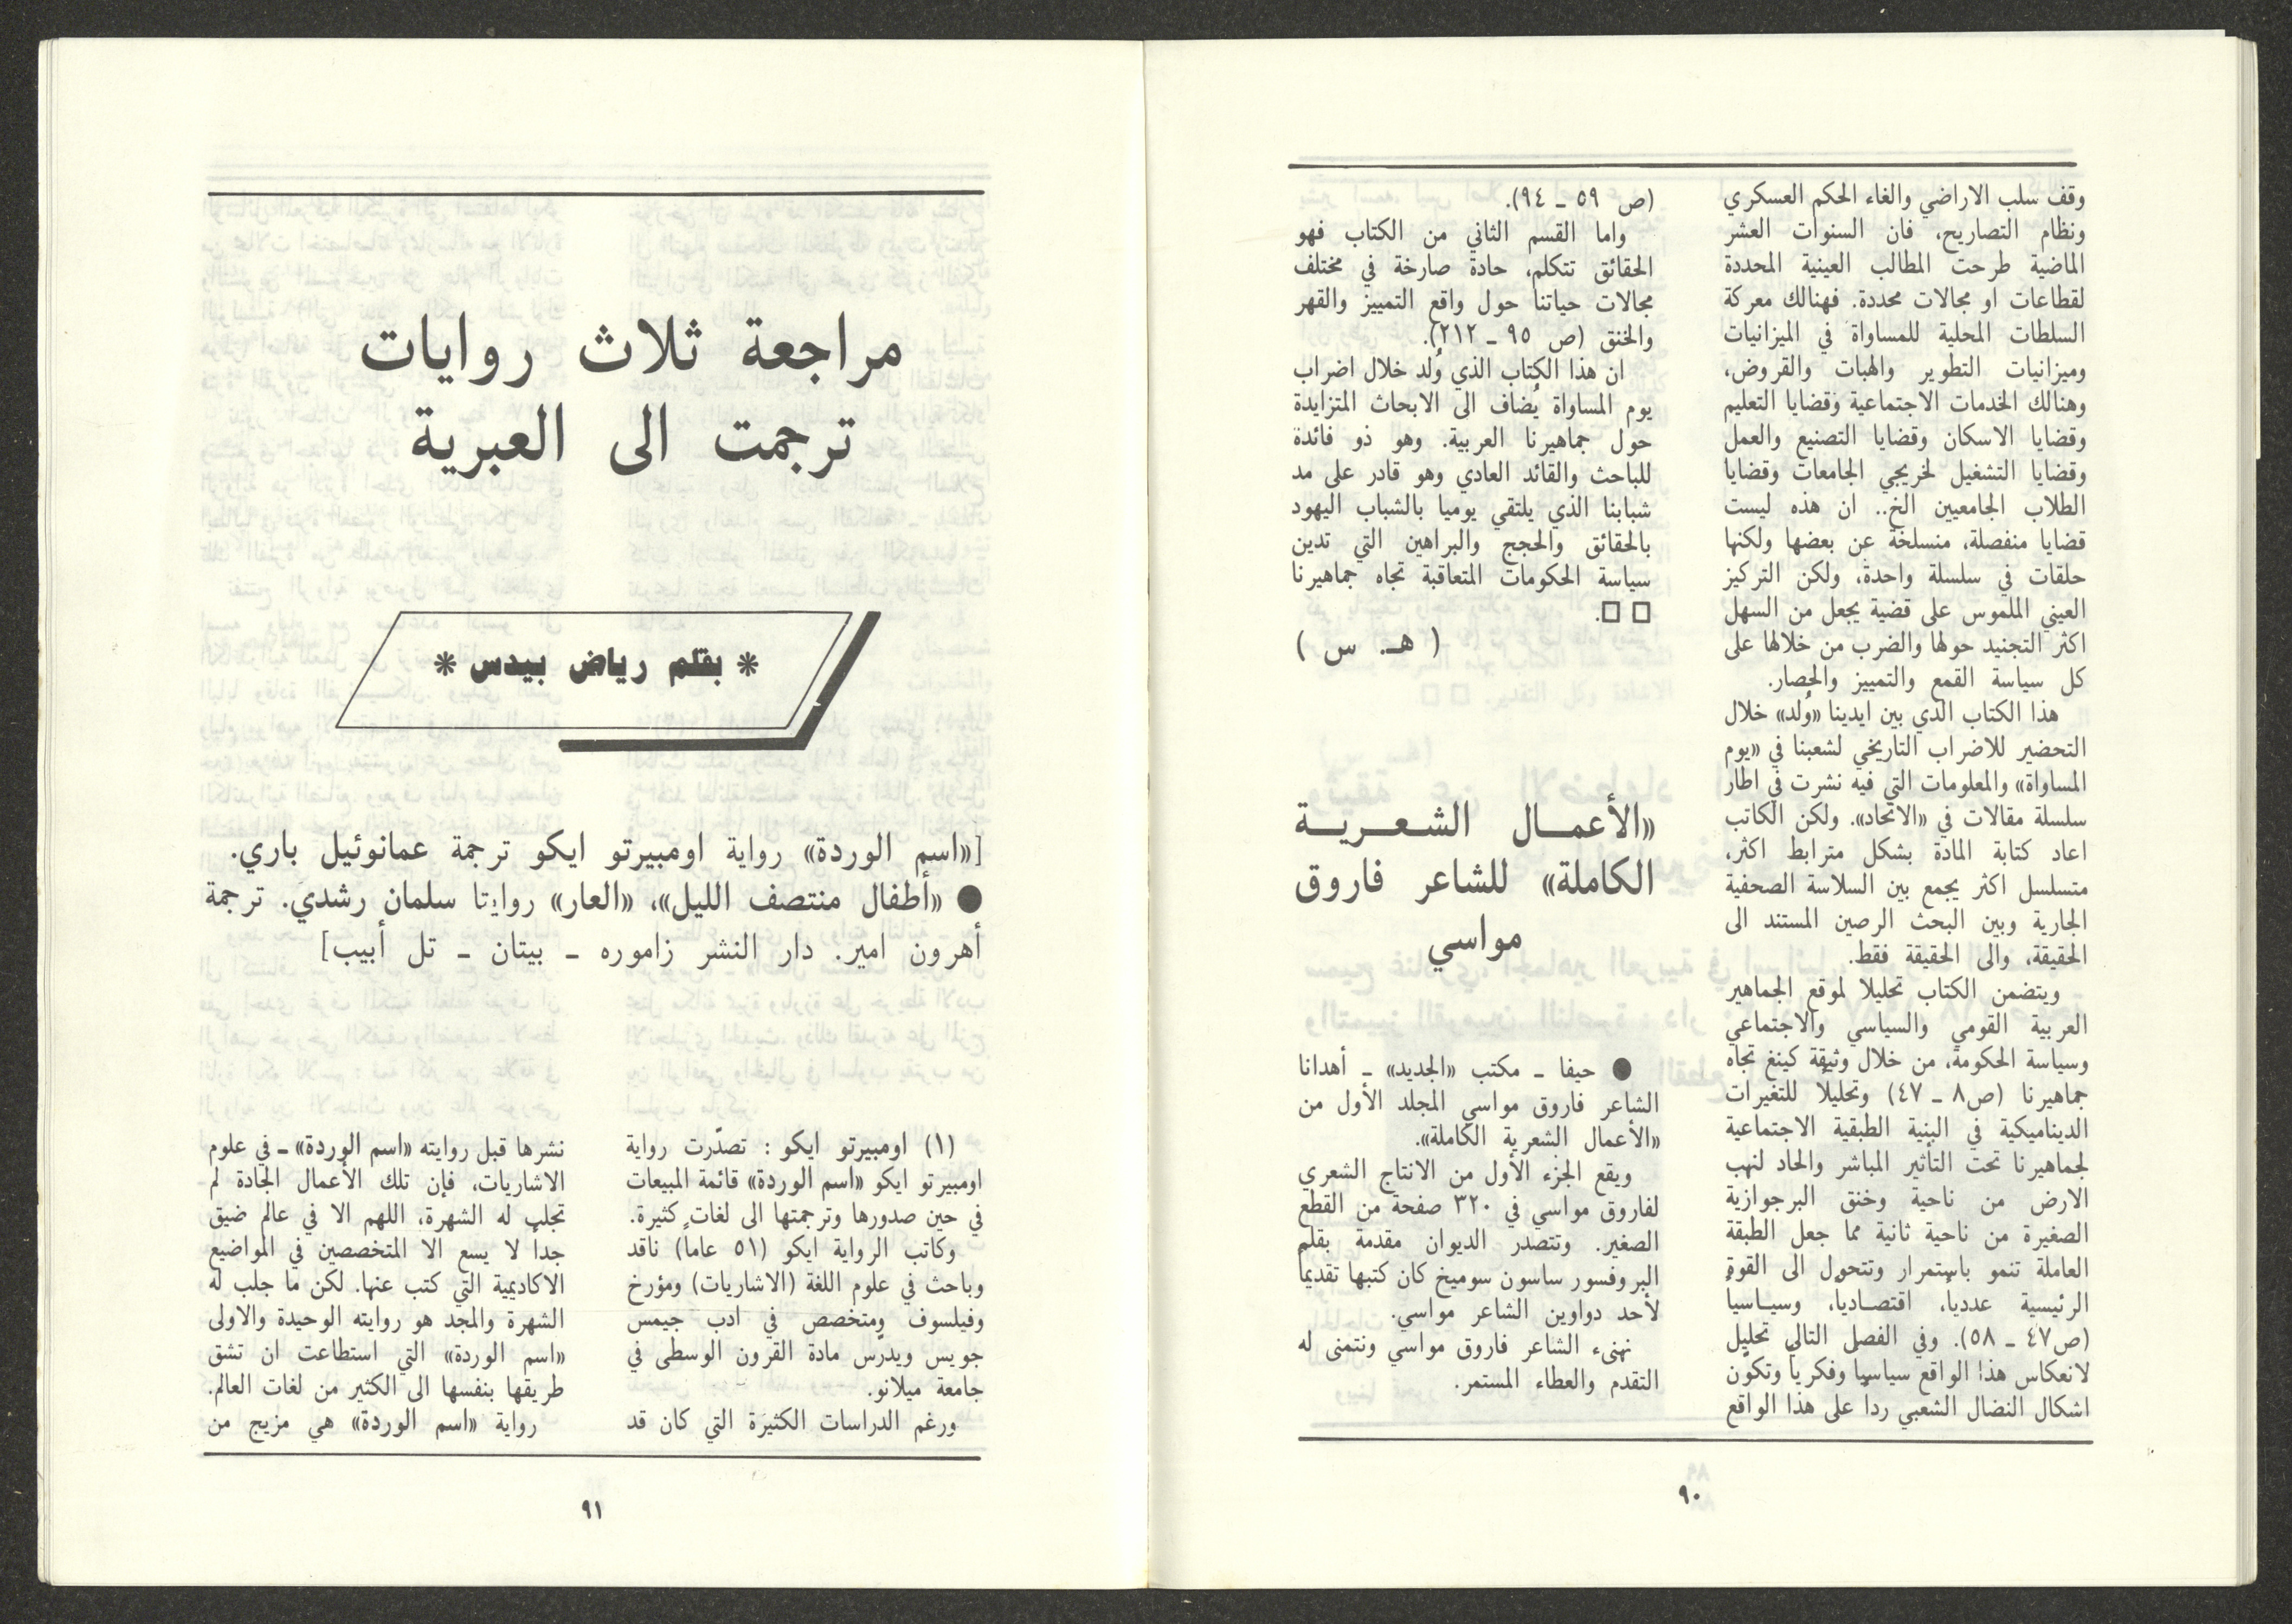 وقف سلب الاراضي والغاء الحكم العسكري
ونظام التصاريح، فان السنوات العشر
الماضية طرحت المطالب العينية المحددة
لقطاعات او مجالات محددة. فهنالك معركة
السلطات المحلية للمساواة في الميزانيات
وميزانيات التطوير والهبات والقروض،
وهنالك الخدمات الاجتماعية وقضايا التعليم
وقضايا الاسكان وقضايا التصنيع والعمل
وقضايا التشغيل لخريجي الجامعات وقضايا
الطلاب الجامعيين الخ.. ان هذه ليست
قضايا منفصلة، منسلخة عن بعضها ولكنها
حلقات في سلسلة واحدة، ولكن التركيز
العيني الملموس على قضية يجعل من السهل
اكثر التجنيد حولها والضرب من خلالها على
كل سياسة القمع والتمييز والحصار.
هذا الكتاب الذي بين ايدينا «وُلد» خلال
التحضير للاضراب التاريخي لشعبنا في «يوم
المساواة» والمعلومات التي فيه نشرت في اطار
سلسلة مقالات في «الاتحاد». ولكن الكاتب
اعاد كتابة المادة بشكل مترابط اكثر،
متسلسل اكثر يجمع بين السلاسة الصحفية
الجارية وبين البحث الرصين المستند الى
الحقيقة، والى الحقيقة فقط.
ويتضمن الكتاب تحليلا لموقع الجماهير
العربية القومي والسياسي والاجتماعي
وسياسة الحكومة، من خلال وثيقة كينغ تجاه
جماهيرنا (ص٨ ـ ٤٧) وتحليلًا للتغيرات
الديناميكية في البنية الطبقية الاجتماعية
لجماهيرنا تحت التأثير المباشر والحاد لنهب
الارض من ناحية وخنق البرجوازية
الصغيرة من ناحية ثانية مما جعل الطبقة
العاملة تنمو باستمرار وتتحول الى القوة
الرئيسية عدديا، اقتصاديا، وسياسيا
(ص٤٧ ـ ٥٨). وفي الفصل التالي تحليل
لانعكاس هذا الواقع سياسيا وفكريا وتكوّن
اشكال النضال الشعبي رداً على هذا الواقع
(ص ٥٩ ـ ٩٤).
واما القسم الثاني من الكتاب فهو
الحقائق تتكلم، حادة صارخة في مختلف
مجالات حياتنا حول واقع التمييز والقهر
والخنق (ص ٩٥ ـ ٢١٢).
ان هذا الكتاب الذي وُلد خلال اضراب
يوم المساواة يُضاف الى الابحاث المتزايدة
حول جماهيرنا العربية. وهو ذو فائدة
للباحث والقائد العادي وهو قادر على مد
شبابنا الذي يلتقي يوميا بالشباب اليهود
بالحقائق والحجج والبراهين التي تدين
سياسة الحكومات المتعاقبة تجاه جماهيرنا
□ □.
( هـ. س )
«الأعمـال الشـعـريـة
الكاملة» للشاعر فاروق
مواسي
● حيفا ـ مكتب «الجديد» ـ أهدانا
الشاعر فاروق مواسي المجلد الأول من
«الأعمال الشعرية الكاملة».
ويقع الجزء الأول من الانتاج الشعري
لفاروق مواسي في ٣٢٠ صفحة من القطع
الصغير. وتتصدر الديوان مقدمة بقلم
البروفسور ساسون سوميخ كان كتبها تقديماً
لأحد دواوين الشاعر مواسي.
نهنىء الشاعر فاروق مواسي ونتمنى له
التقدم والعطاء المستمر.
٩٠
مراجعة ثلاث روايات
ترجمت الى العبرية
* بقلم رياض بيدس *
[«اسم الوردة» رواية اومبيرتو ايكو ترجمة عمانوئيل باري.
● «أطفال منتصف الليل»، «العار» روايتا سلمان رشدي. ترجمة
أهرون امير. دار النشر زاموره ـ بيتان ـ تل أبيب]
(١) اومبيرتو ايكو : تصدّرت رواية
اومبيرتو ايكو «اسم الوردة» قائمة المبيعات
في حين صدورها وترجمتها الى لغات كثيرة.
وكاتب الرواية ايكو (٥١ عاماً) ناقد
وباحث في علوم اللغة (الاشاريات) ومؤرخ
وفيلسوف ومتخصص في ادب جيمس
جويس ويدرّس مادة القرون الوسطى في
جامعة ميلانو.
ورغم الدراسات الكثيرة التي كان قد
نشرها قبل روايته «اسم الوردة» ـ في علوم
الاشاريات، فإن تلك الأعمال الجادة لم
تجلب له الشهرة، اللهم الا في عالم ضيق
جداً لا يسع الا المتخصصين في المواضيع
الاكاديمية التي كتب عنها. لكن ما جلب له
الشهرة والمجد هو روايته الوحيدة والاولى
«اسم الوردة» التي استطاعت ان تشق
طريقها بنفسها الى الكثير من لغات العالم.
رواية «اسم الوردة» هي مزيج من
٩١